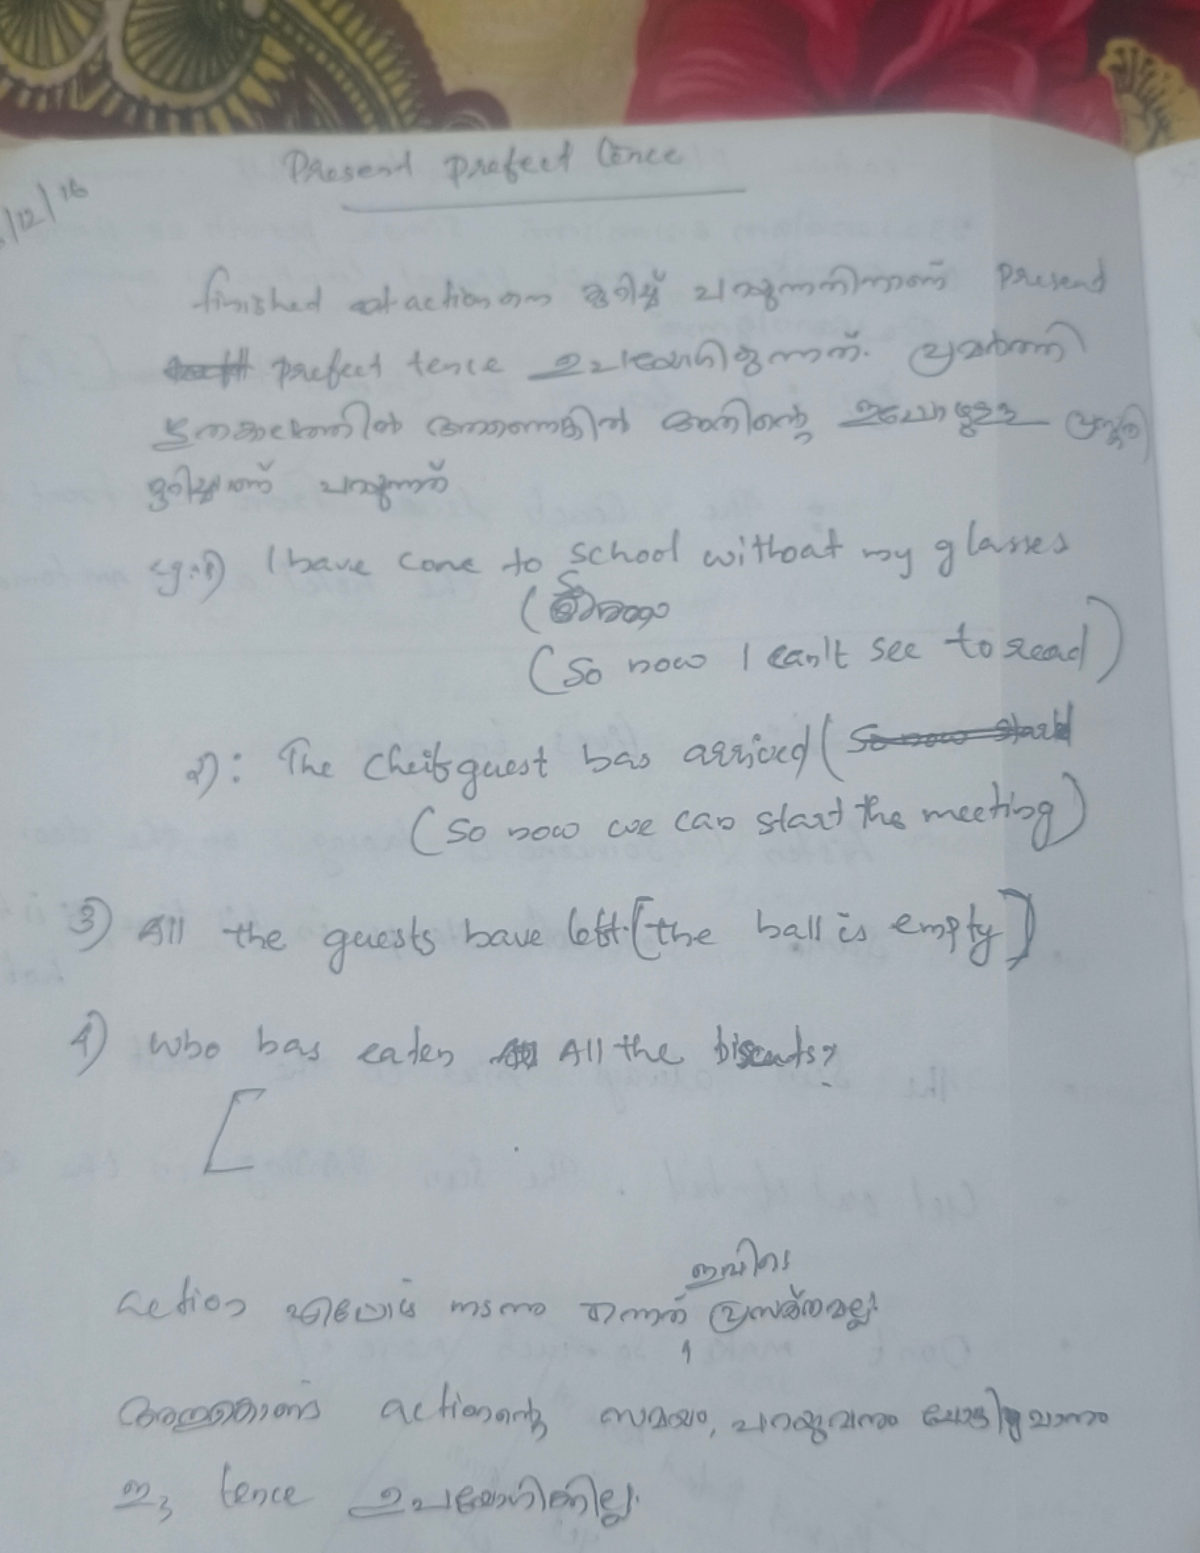 /12/16
Present Prefect tence
finished actionനെ കുറിച്ച് പറയുന്നതിനാണ് Present
prefect tence ഉപയോഗിക്കുന്നത്. പ്രവർത്തി
ഭൂതകാലത്തിൽ ആണെങ്കിൽ അതിന്റെ ഇപ്പോഴുള്ള
കുറിച്ചാണ് പറയുന്നത്
eg:-1) I have come to school without my glasses
(So now I can't see to read)
2): The Cheif guest has arrived (So now start
(So now we can start the meeting)
3) All the guests have left. [the hall is empty]
4) Who has eaten All the biscuts?
ഇവിടെ
action എപ്പോൾ നടന്നു എന്നത് പ്രസക്തമല്ല.
അതുകൊണ്ട് actionന്റെ സമയം, പറയുവാനും ചോദിക്കുവാനും
ഈ tence ഉപയോഗിക്കില്ല.